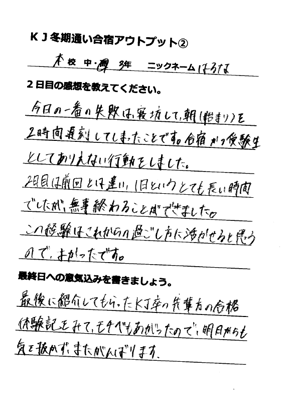 KJ冬期通い合宿アウトプット②
本校 中・高 3年 ニックネーム はるな
2日目の感想を教えてください。
今日の一番の失敗は、寝坊して、朝(始まり)を
2時間遅刻してしまったことです。合宿かつ受験生
としてありえない行動をしました。
2日目は前回とは違い、1日というとても長い時間
でしたが、無事終わることができました。
この経験はこれからの過ごし方に活かせると思う
ので、よかったです。
最終日への意気込みを書きましょう。
最後に紹介してもらったKJ卒の先輩方の合格
体験記をみて、モチベもあがったので、明日からも
気を抜かず、またがんばります。